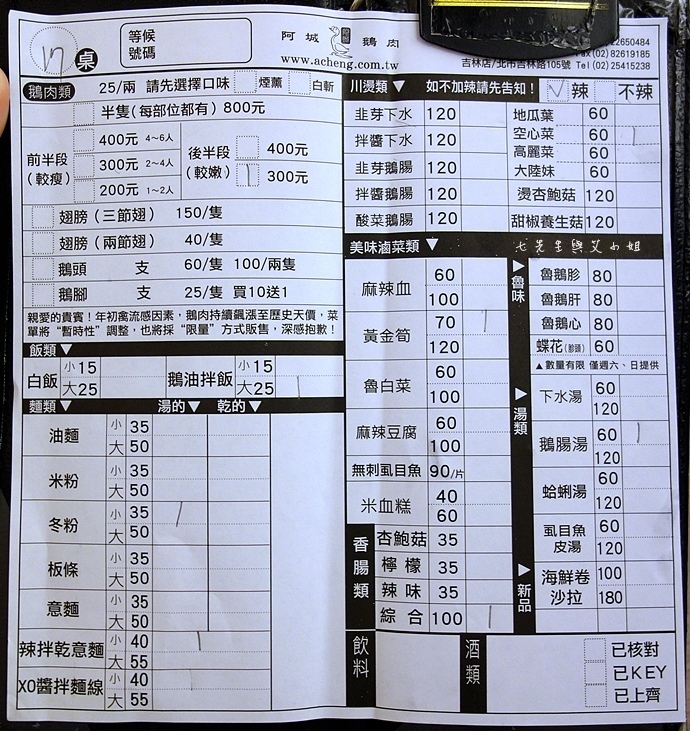 17 桌
等候
號碼
阿城 鵝肉
www.acheng.com.tw
22650484
Fax(02)82619185
吉林店/北市吉林路105號 Tel(02)25415238
鵝肉類 25/兩 請先選擇口味 煙薰 白斬
半隻(每部位都有)800元
前半段
(較瘦)
400元 4~6人
300元 2~4人
200元 1~2人
後半段
(較嫩)
400元
300元
翅膀(三節翅) 150/隻
翅膀(兩節翅) 40/隻
鵝頭 支 60/隻 100/兩隻
鵝腳 支 25/隻 買10送1
親愛的貴賓!年初禽流感因素,鵝肉持續飆漲至歷史天價,菜
單將"暫時性"調整,也將採"限量"方式販售,深感抱歉!
飯類▼
白飯 小15 大25
鵝油拌飯 小15 大25
麵類▼ 湯的▼ 乾的▼
油麵 小 35 大 50
米粉 小 35 大 50
冬粉 小 35 大 50
板條 小 35 大 50
意麵 小 35 大 50
辣拌乾意麵 小 40 大 55
XO醬拌麵線 小 40 大 55
川燙類▼ 如不加辣請先告知! 辣 不辣
韭芽下水 120
拌醬下水 120
韭芽鵝腸 120
拌醬鵝腸 120
酸菜鵝腸 120
地瓜葉 60
空心菜 60
高麗菜 60
大陸妹 60
燙杏鮑菇 120
甜椒養生菇 120
美味滷菜類▼
七先生與艾小姐
麻辣血 60 100
黃金筍 70 120
魯白菜 60 100
麻辣豆腐 60 100
無刺虱目魚 90/片
米血糕 40 60
香腸類
杏鮑菇 35
檸檬 35
辣味 35
綜合 100
▶魯味
魯鵝胗 80
魯鵝肝 80
魯鵝心 80
蝶花(鵝頭) 60
▲數量有限 僅週六、日提供
▶湯類
下水湯 60 120
鵝腸湯 60 120
蛤蜊湯 60 120
虱目魚
皮湯 60 120
▶新品
海鮮卷 100
沙拉 180
飲料
酒類
已核對
已KEY
已上齊